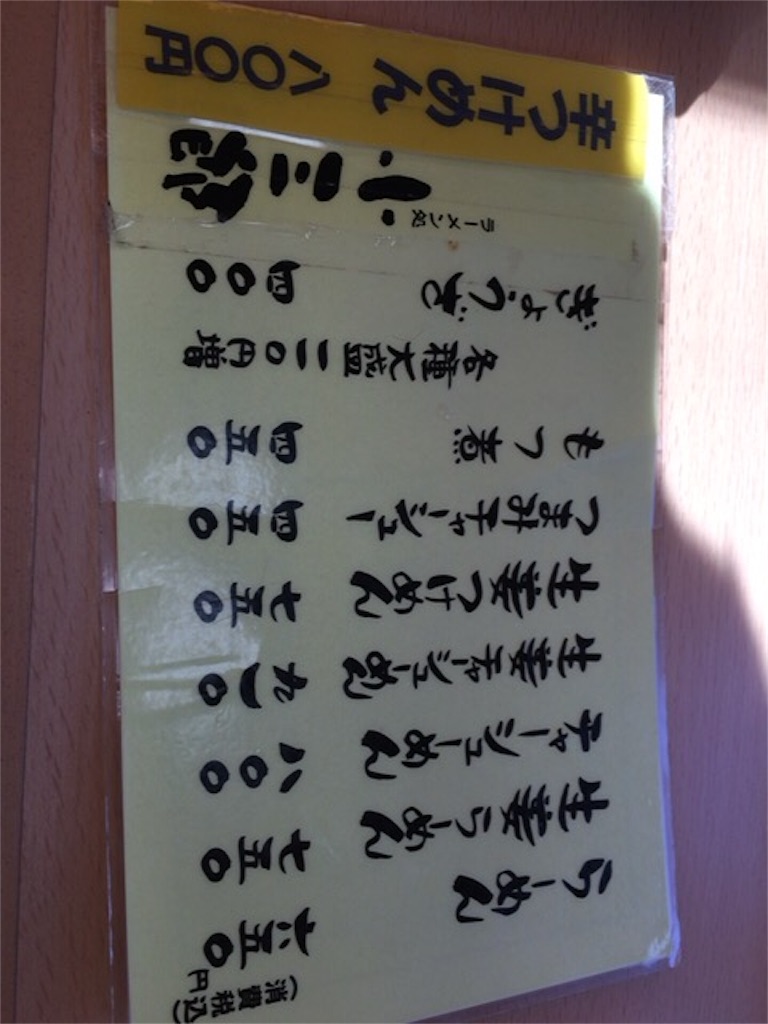 らーめん 六五〇円(消費税込)
生姜らーめん 七五〇
チャーシューめん 八〇〇
生姜チャーシューめん 九一〇
生姜つけめん 七五〇
つまみチャーシュー 四五〇
もつ煮 四五〇
各種大盛一一〇円増
ぎょうざ 四〇〇
ラーメン処 小三郎
辛つけめん 八〇〇円